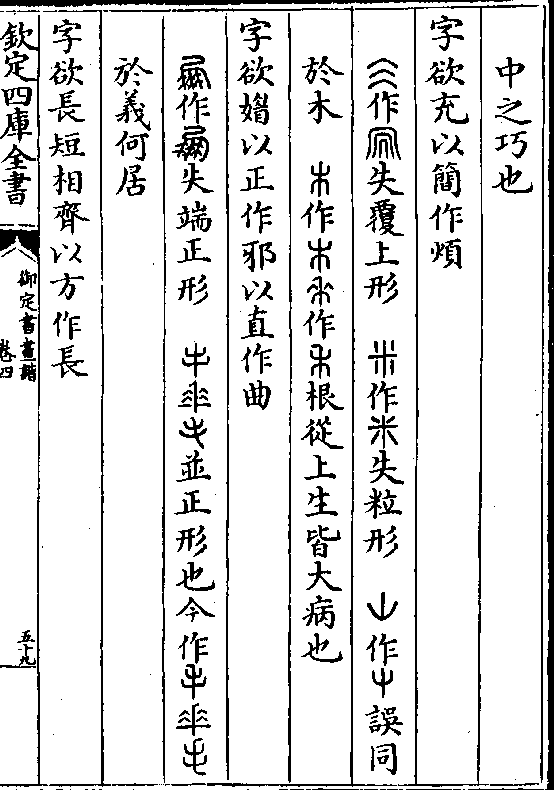 中之巧也
字欲充以簡作煩
作失覆上形　作失粒形　作誤同
於木　作作根從上生皆大病也
字欲媚以正作邪以直作曲
作失端正形　並正形也今作
於義何居
字欲長短相齊以方作長
欽定四庫全書
御定書畫譜
卷四
五十九